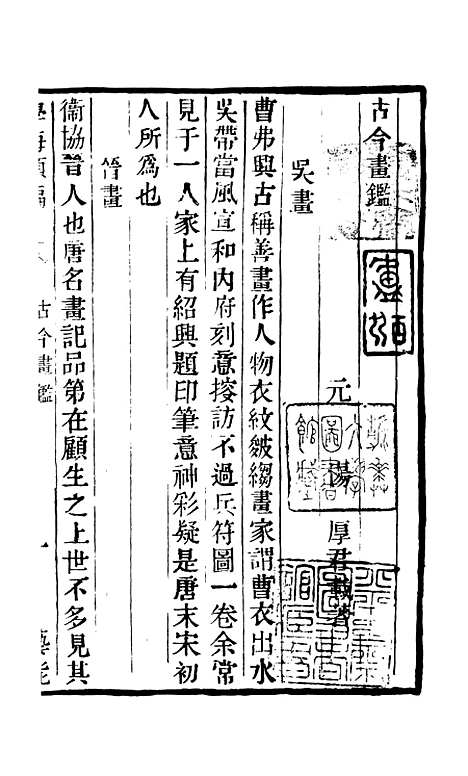 古今畫鑑
元 湯 厚君載著
吳畫
曹弗興古稱善畫作人物衣紋皴縐畫家謂曹衣出水
吳帶當風宣和內府刻意搜訪不過兵符圖一卷余常
見于一人家上有紹興題印筆意神彩疑是唐末宋初
人所爲也
晉畫
衞協晉人也唐名畫記品第在顧生之上世不多見其
學海類編
古今畫鑑
一
藝能